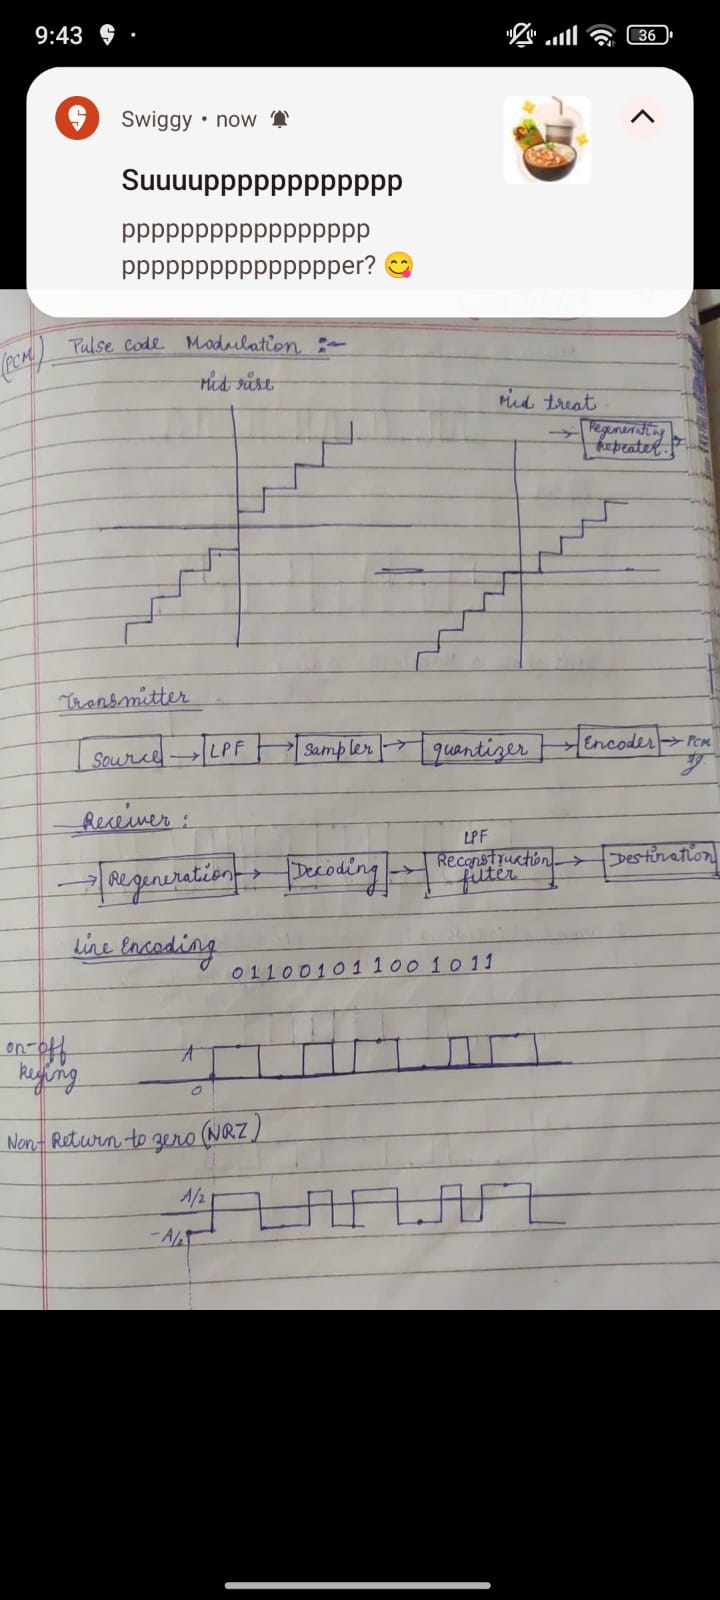 9:43
36
Swiggy • now
Suuuupppppppppppp
ppppppppppppppppp
ppppppppppppppppper? 😋
(PCM) Pulse Code Modulation :-
Mid rise
Mid treat
Regenerating
Repeater.
Transmitter
Source → LPF → Sampler → quantizer → Encoder → PCM
Receiver :
LPF
→ Regeneration → Decoding → Reconstruction filter → Destination
Line Encoding
011001011001011
on-off
keying
A
0
Non-Return to zero (NRZ)
A/2
-A/2